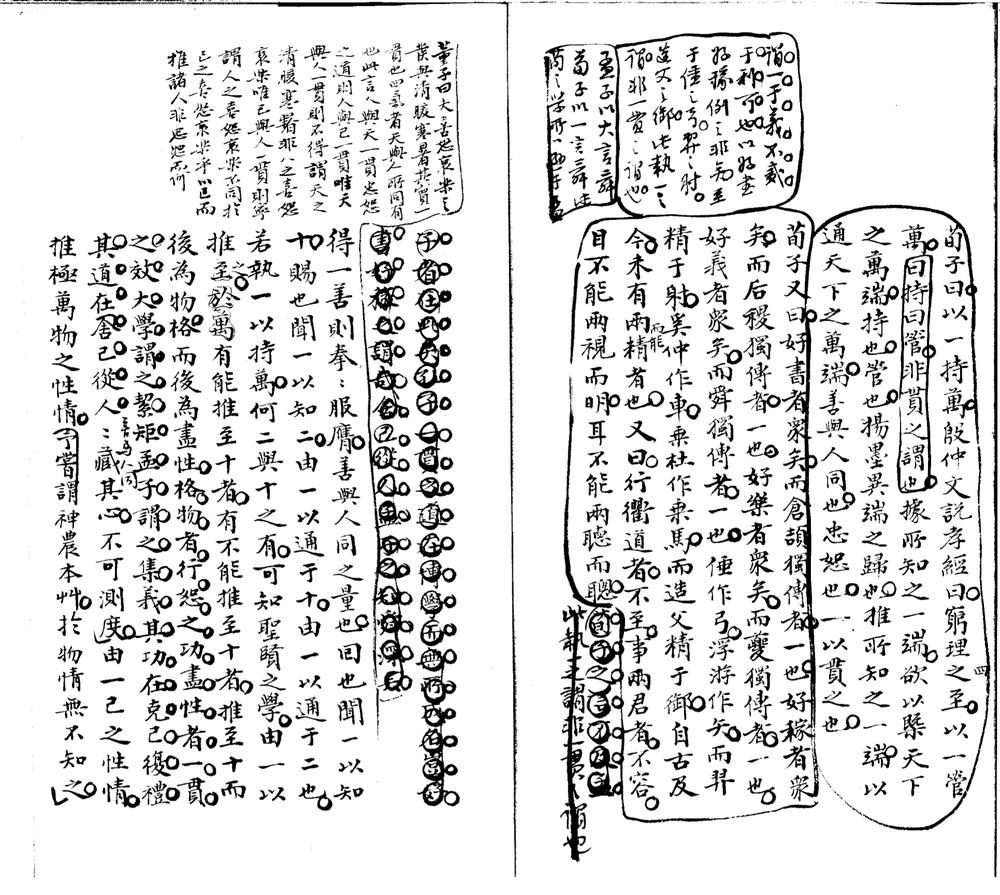 謂一于義不貳
于利可也以好書
好稼例之非矣至
于倕之弓羿之射
造父之御此執一之
謂非一貫之謂也
孟子以大言舜
荀子以一言舜此
荀子曰以一持萬殷仲文說孝經曰窮理之至以一管
萬曰持曰管非貫之謂也據所知之一端欲以槩天下
之萬端持也管也揚墨異端之歸也推所知之一端以
通天下之萬端善與人同也忠恕也一以貫之也
荀子又曰好書者衆矣而倉頡獨傳者一也好稼者衆
矣而后稷獨傳者一也好樂者衆矣而夔獨傳者一也
好義者衆矣而舜獨傳者一也倕作弓浮游作矢而羿
精于射奚仲作車乗杜作乗馬而造父精于御自古及
今未有兩能精者也又曰行衢道者不至事兩君者不容
目不能兩視而明耳不能兩聽而聰
此執一之謂非一貫之謂也
董子曰夫喜怒哀樂之
發與清暖寒暑其實一
貫也四氣者天與人所同有
也此言人與天一貫忠恕
之道則人與己一貫唯天
與人一貫則不得謂天之
清暖寒暑非人之喜怒
哀樂唯己與人一貫則寧
謂人之喜怒哀樂不同於
己之喜怒哀樂乎以己而
推諸人非忠恕而何
得一善則拳〻服膺善與人同之量也回也聞一以知
十賜也聞一以知二由一以通于十由一以通于二也
若執一以持萬何二與十之有可知聖賢之學由一以
推之至於萬有能推至十者有不能推至十者推至十而
後為物格而後為盡性格物者行恕之功盡性者一貫
之效大學謂之絜矩孟子謂之集義其功在克己復禮
其道在舍己從人人藏其心不可測度由一己之性情
推極萬物之性情予嘗謂神農本艸於物情無不知之